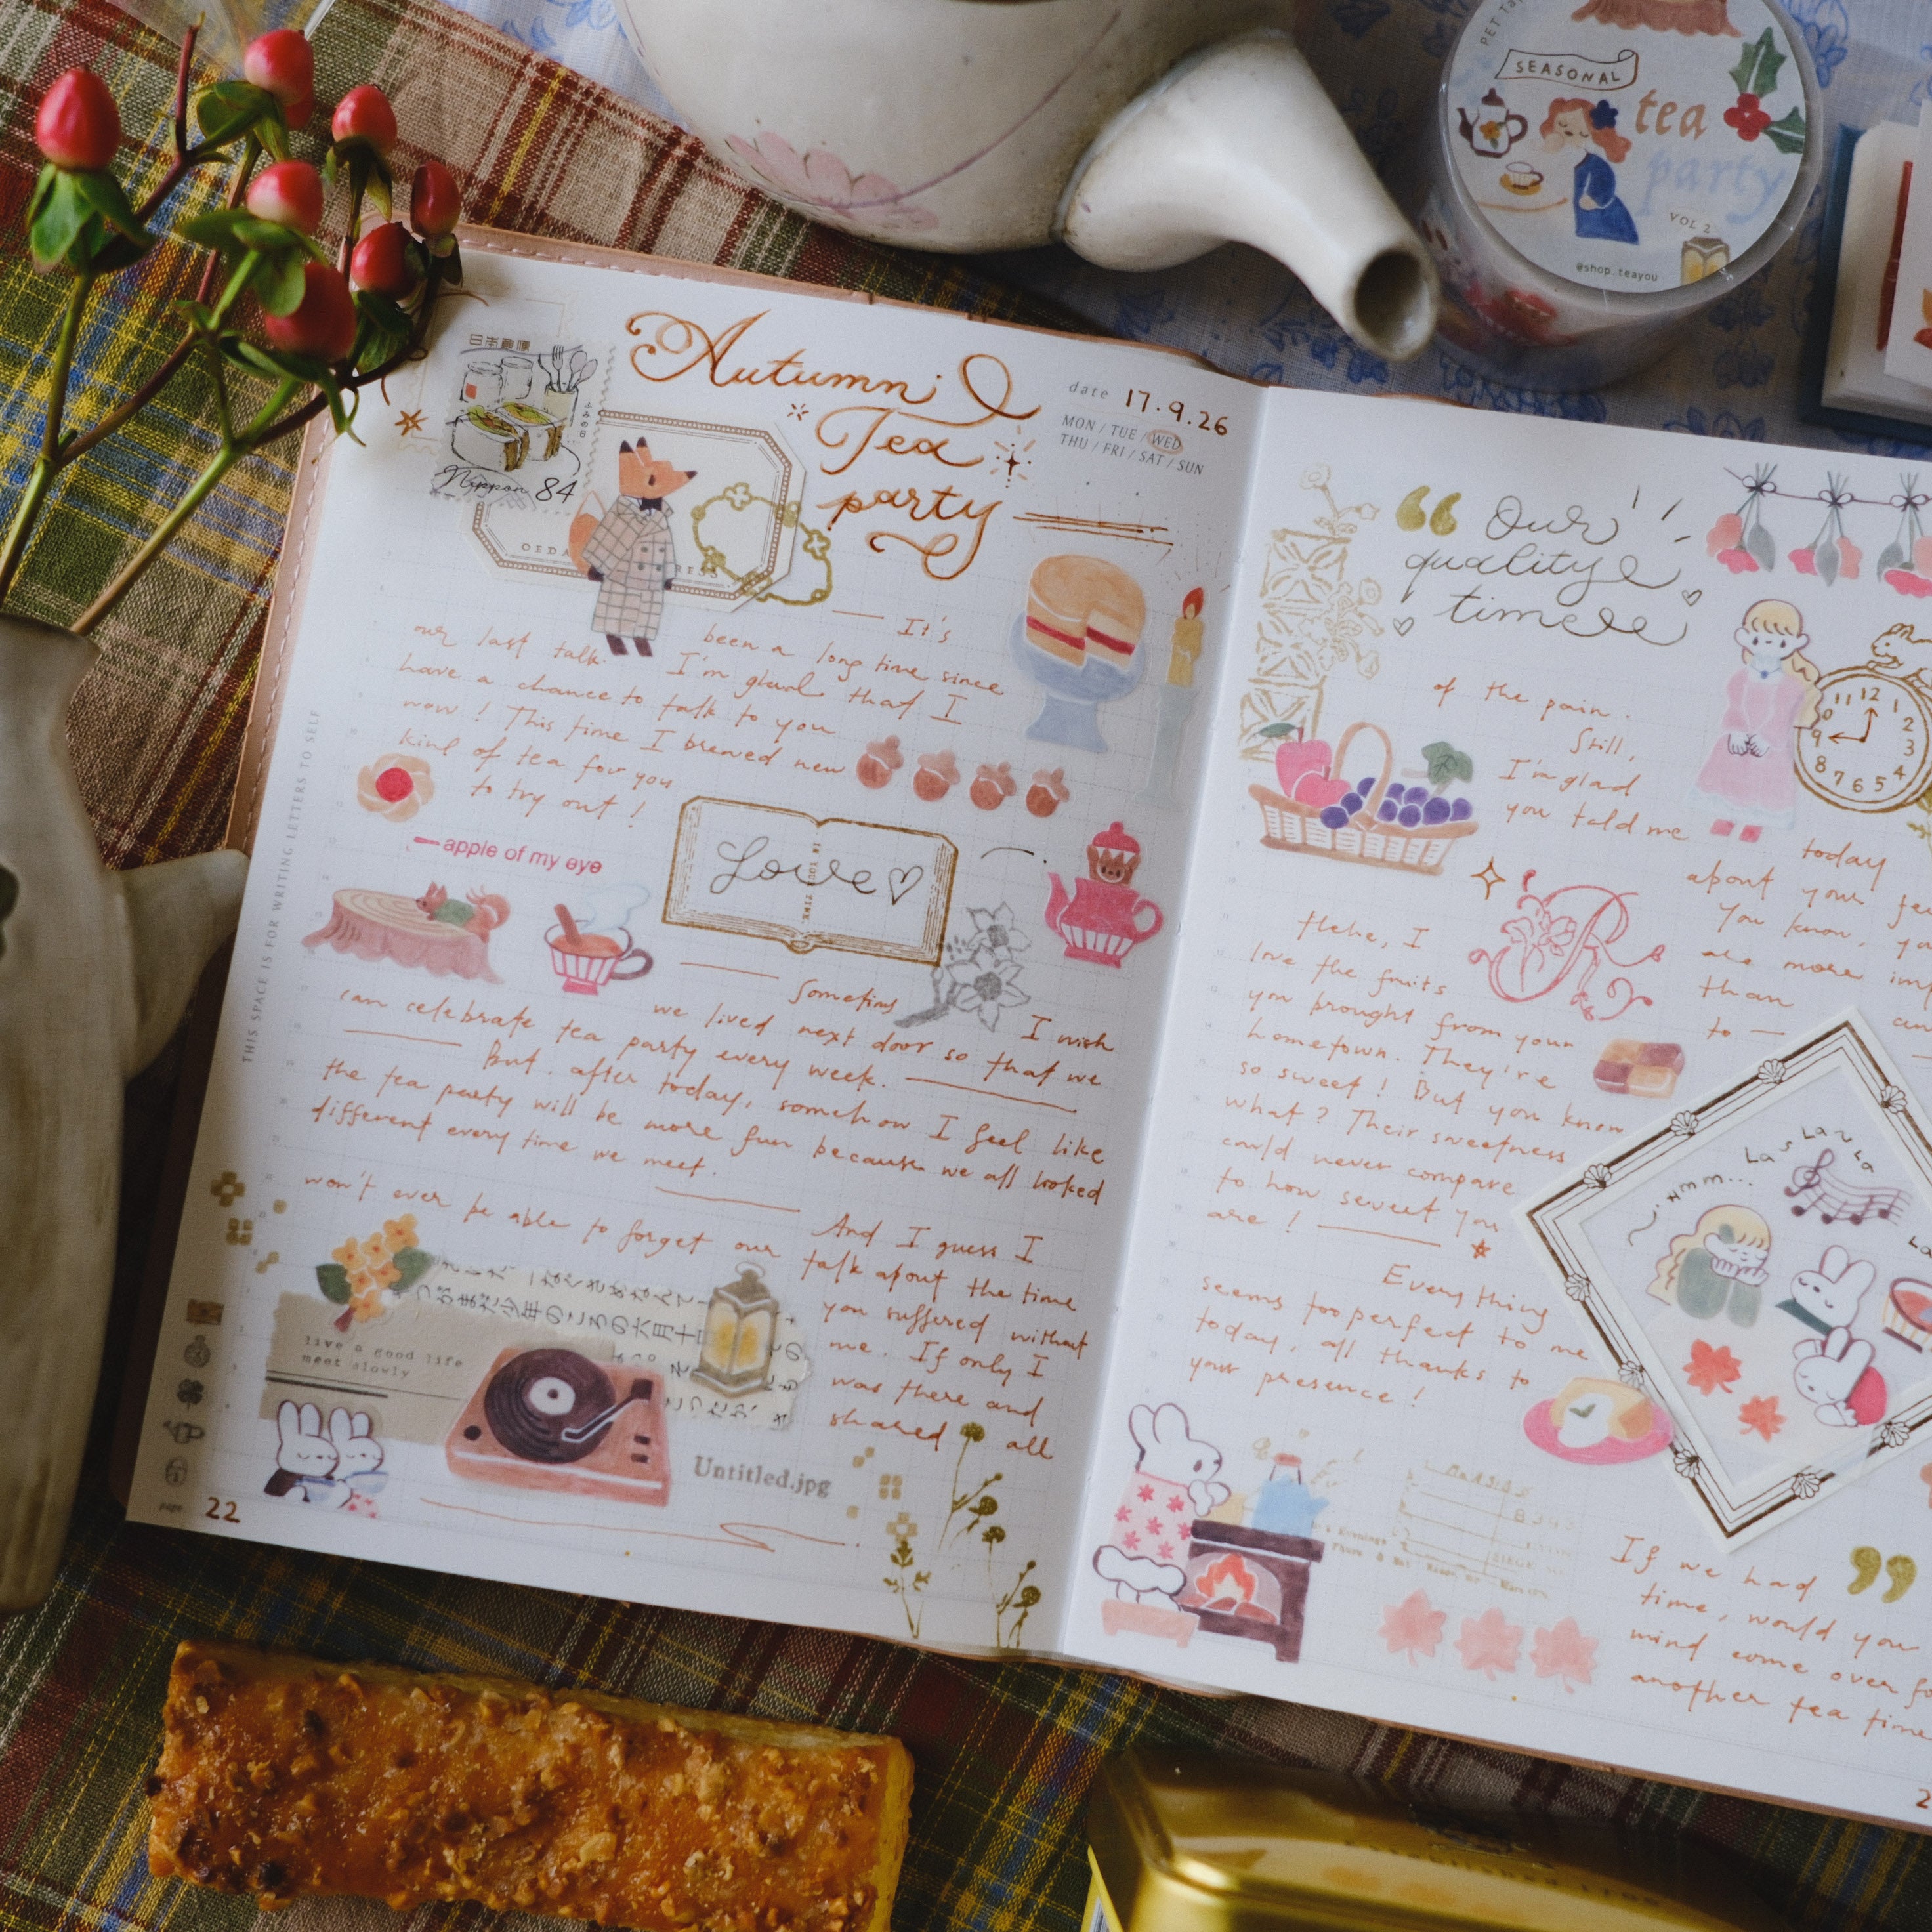 PET Ta
SEASONAL
tea
party
VOL 2
@shop.teayou
日本郵便
Nippon 84
Autumn
Tea
party
date 17.9.26
MON / TUE / WED
THU / FRI / SAT / SUN
OEDA
RESS
It's
been a long time since
our last talk. I'm glad that I
have a chance to talk to you
now! This time I brewed new
kind of tea for you
to try out!
apple of my eye
Love
THIS SPACE IS FOR WRITING LETTERS TO SELF
Sometims I wish
we lived next door so that we
can celebrate tea party every week.
But, after today, somehow I feel like
the tea party will be more fun because we all looked
different every time we meet.
And I guess I
won't ever be able to forget our
talk about the time
you suffered without
me. If only I
was there and
shared all
つおまだ少年のころの六月十
live a good life
meet slowly
Untitled.jpg
page 22
“ Our
quality
time
of the pain.
Still,
I'm glad
you told me
today
about your fe
You know, yo
are more imp
than
to —
11 12 1
2
3
4
5
6
7
8
9
R
Hehe, I
love the fruits
you brought from your
hometown. They're
so sweet! But you know
what? Their sweetness
could never compare
to how sweet you
are!
Everything
seems too perfect to me
today, all thanks to
your presence!
Hmm...
La La La
If we had
time, would you
mind come over fo
another tea time
”
2